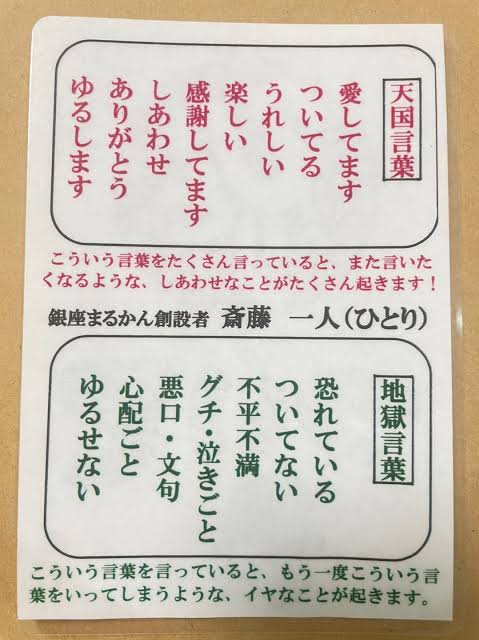 天国言葉
愛してます
ついてる
うれしい
楽しい
感謝してます
しあわせ
ありがとう
ゆるします
こういう言葉をたくさん言っていると、また言いた
くなるような、しあわせなことがたくさん起きます！
銀座まるかん創設者 斎藤 一人（ひとり）
地獄言葉
恐れている
ついてない
不平不満
グチ・泣きごと
悪口・文句
心配ごと
ゆるせない
こういう言葉を言っていると、もう一度こういう言
葉をいってしまうような、イヤなことが起きます。